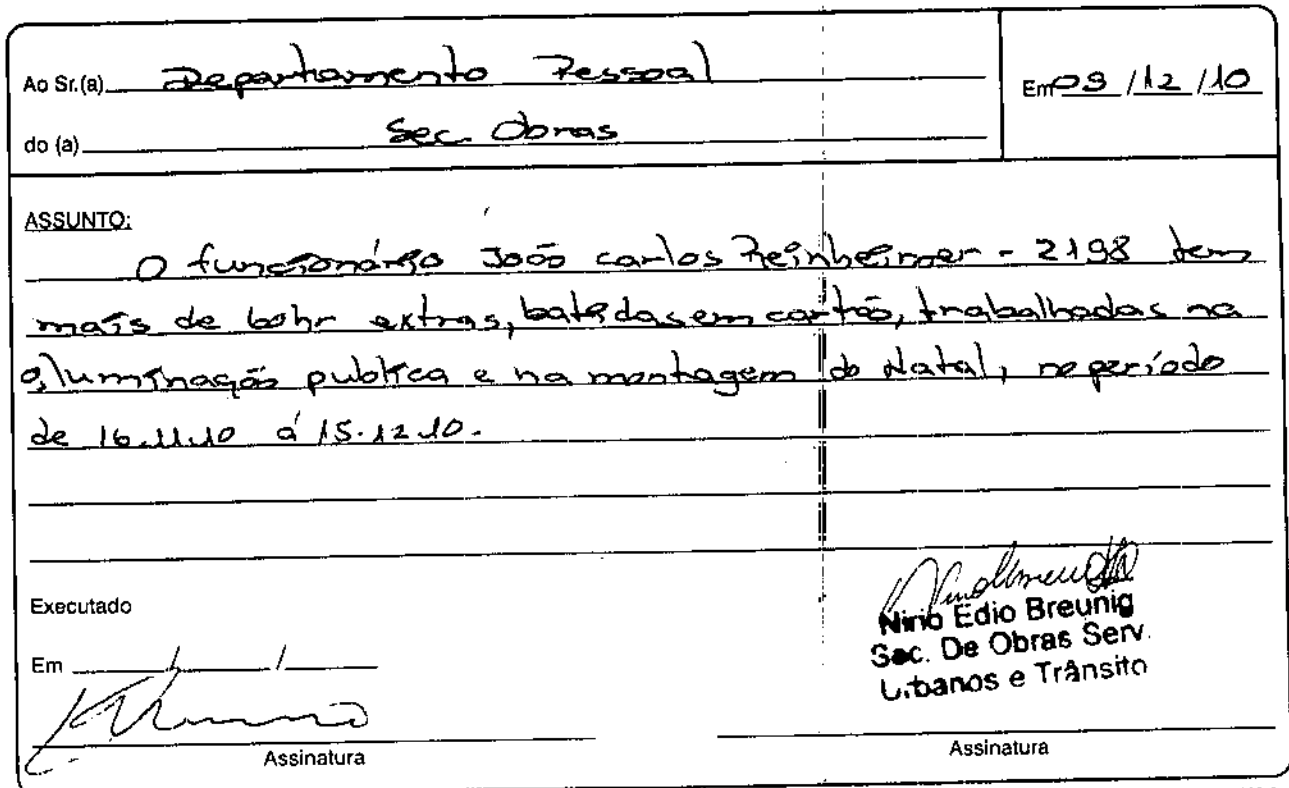 Ao Sr.(a) Departamento Pessoal
Em 09/12/10
do (a) Sec. Obras
ASSUNTO:
O funcionário João carlos Reinheimer - 2198 tem
mais de 60hr extras, batidas em cartão, trabalhadas na
iluminação publica e na montagem do Natal, no período
de 16.11.10 á 15.12.10.
Executado
Em / /
Nirio Edio Breunig
Sec. De Obras Serv.
Urbanos e Trânsito
Assinatura
Assinatura